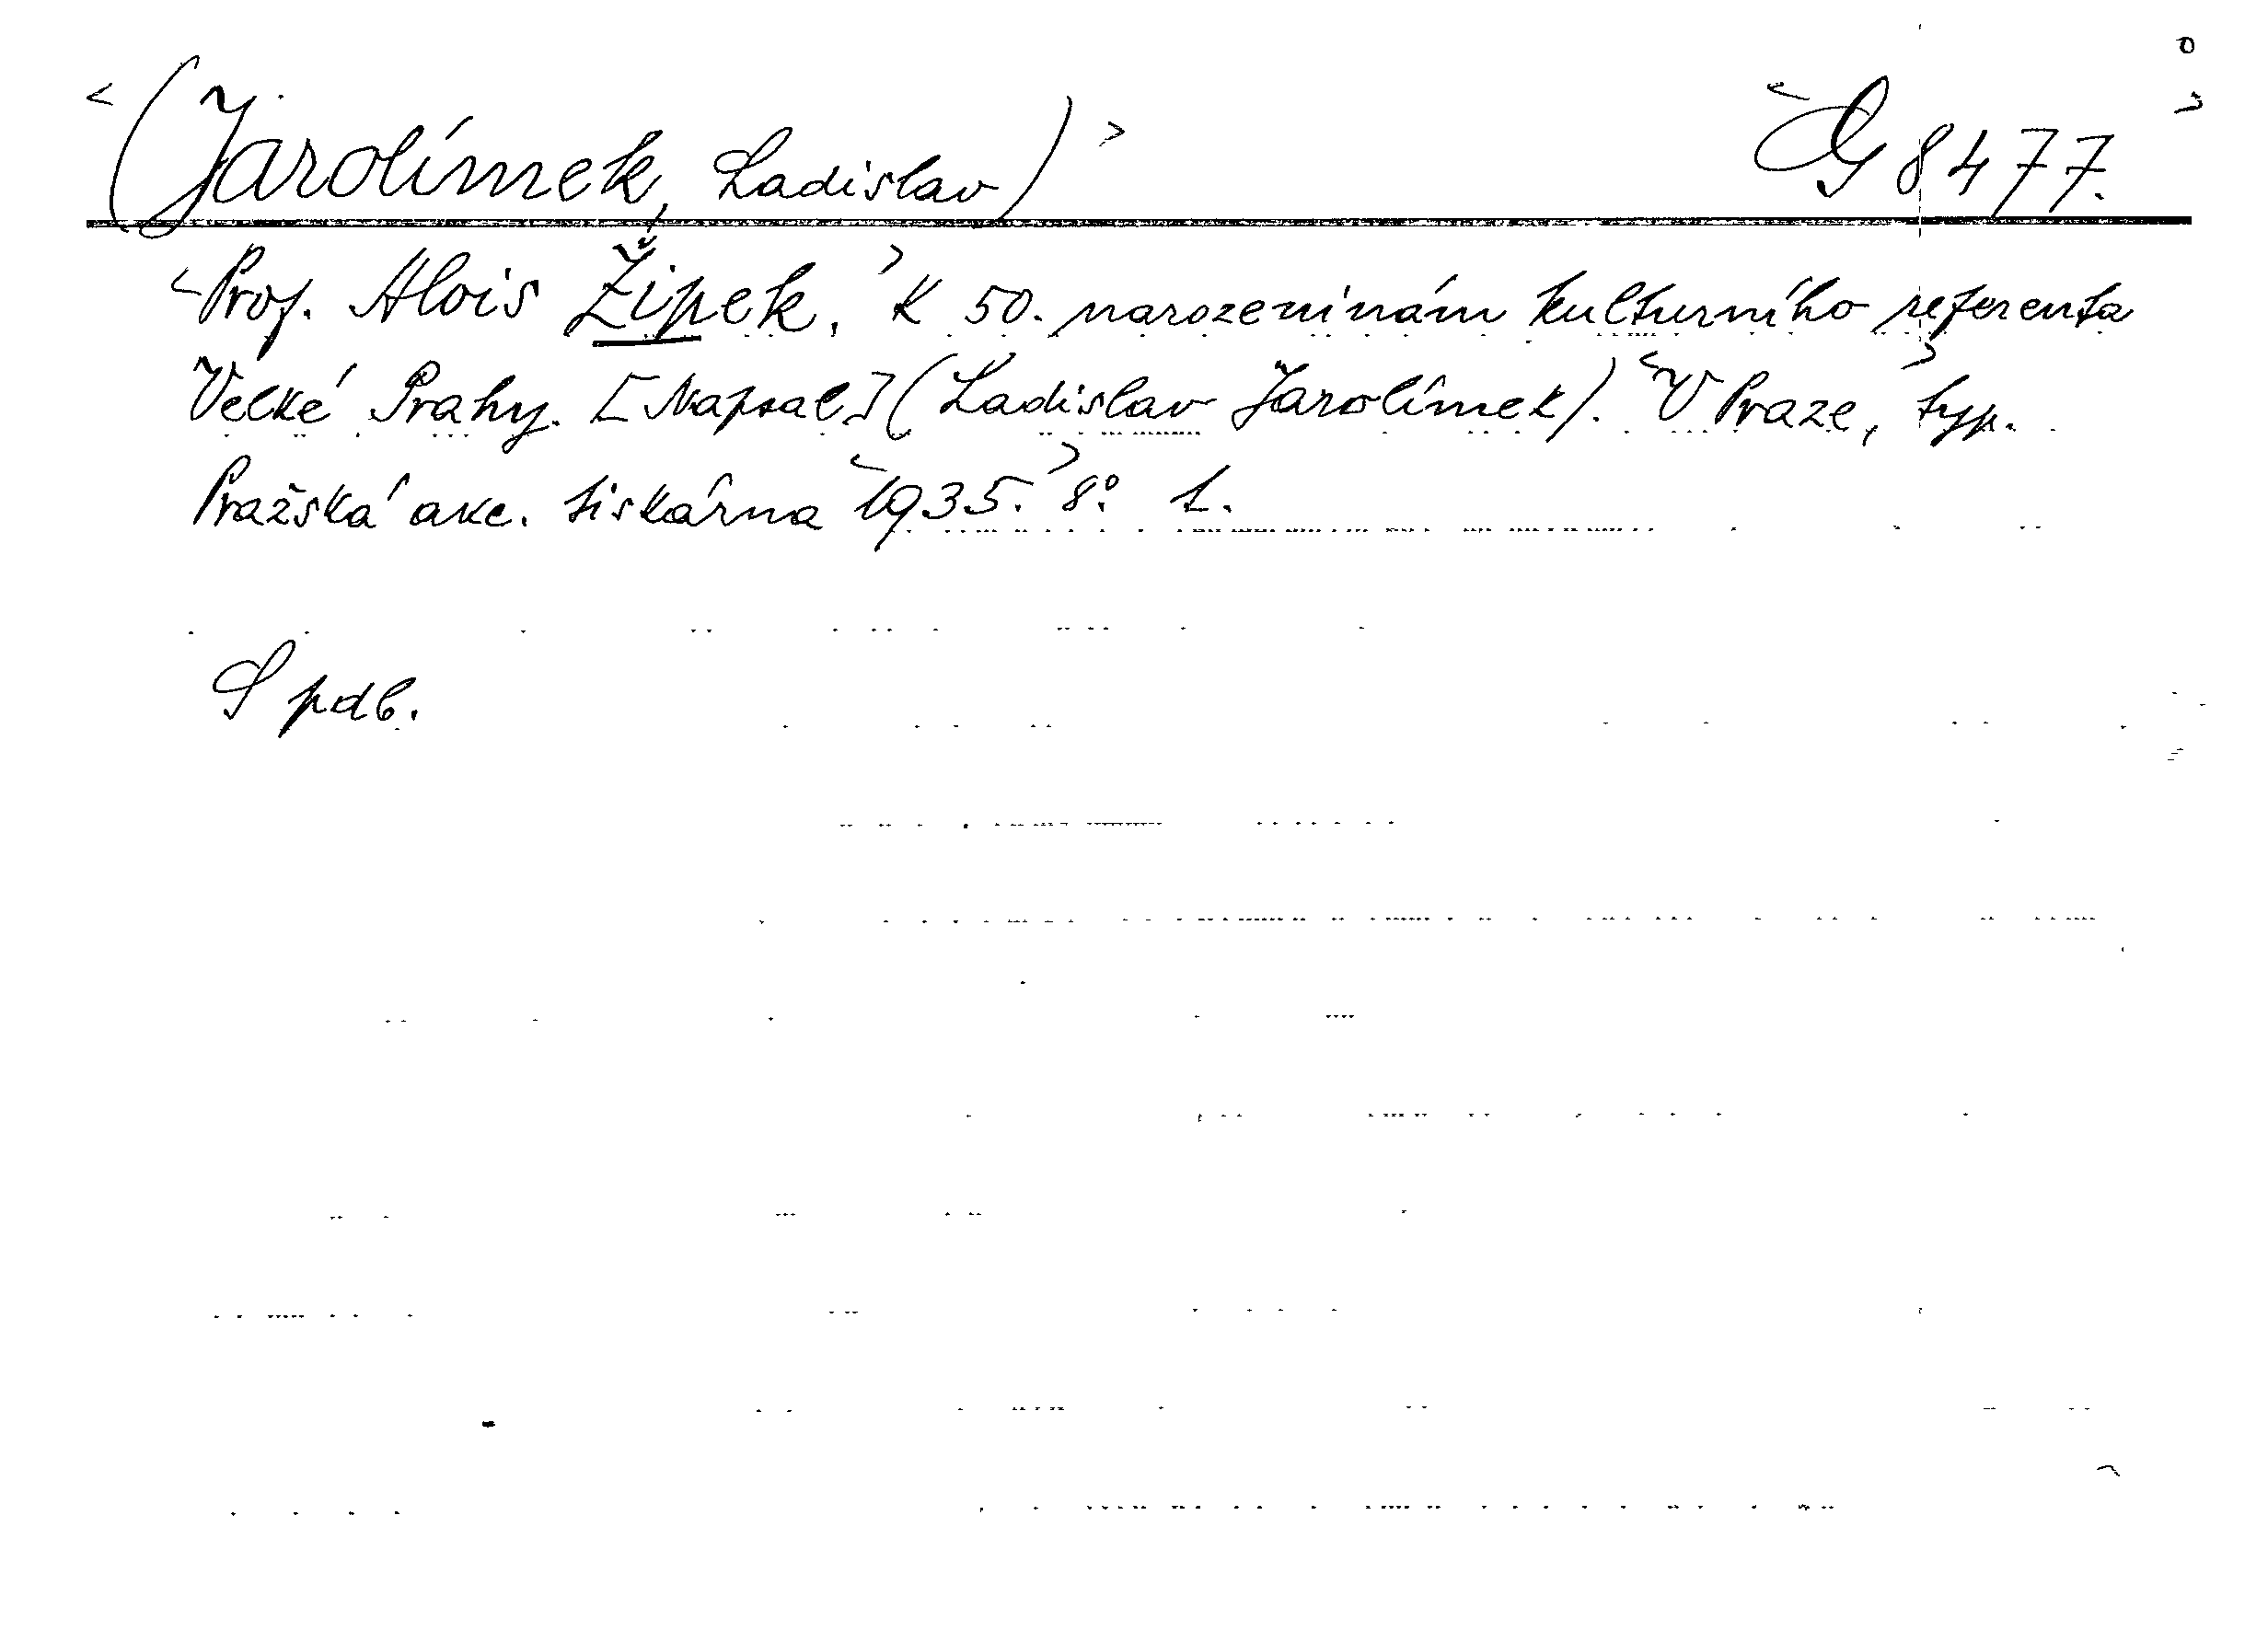 <(Jarolímek, Ladislav)> <G 8477.>
<Prof. Alois Žipek.> K 50. narozeninám kulturního referenta
Velké Prahy. [Napsal] (Ladislav Jarolímek). <V Praze,> typ.
Pražská akc. tiskárna <1935.> 8° 1.
S pdb.